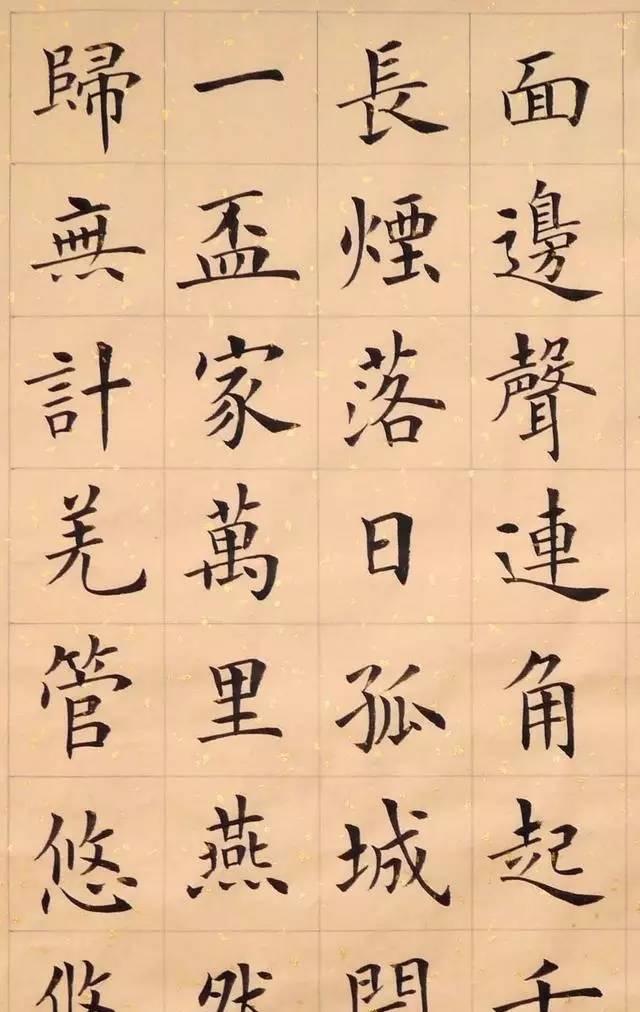 面邊聲連角起千
長煙落日孤城閉
一盃家萬里燕然
歸無計羌管悠悠